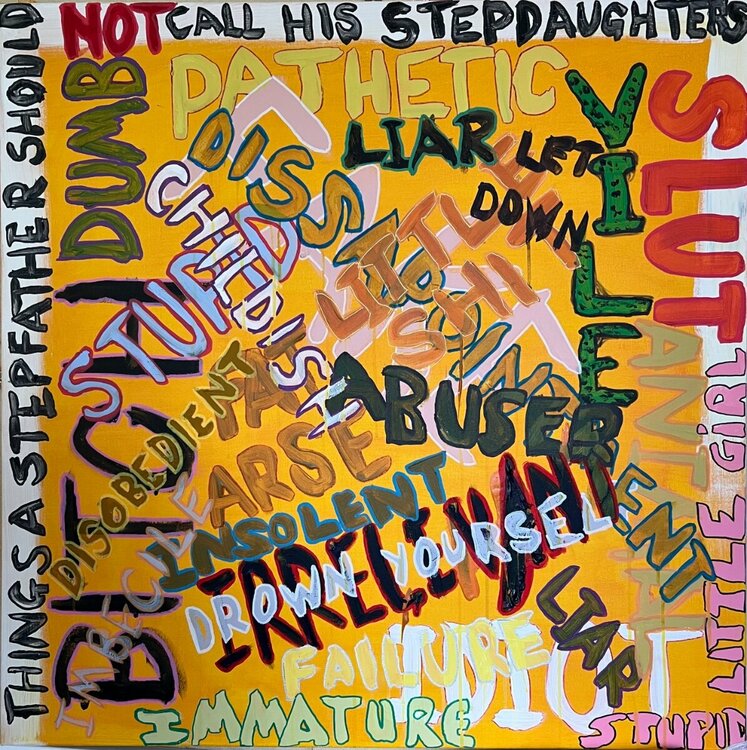 THINGS A STEPFATHER SHOULD
NOT CALL HIS STEPDAUGHTERS
PATHETIC
DUMB
DISSAPOINTMENT
LIAR
LET
DOWN
VILE
SLUT
CHILDISH
STUPID
LITTLE
SHI
BITCH
FAT
ARSE
ABUSER
DISOBEDIENT
IMBECILE
INSOLENT
DROWN YOURSELF
FAILURE
IDIOT
LIAR
IMMATURE
STUPID LITTLE GIRL